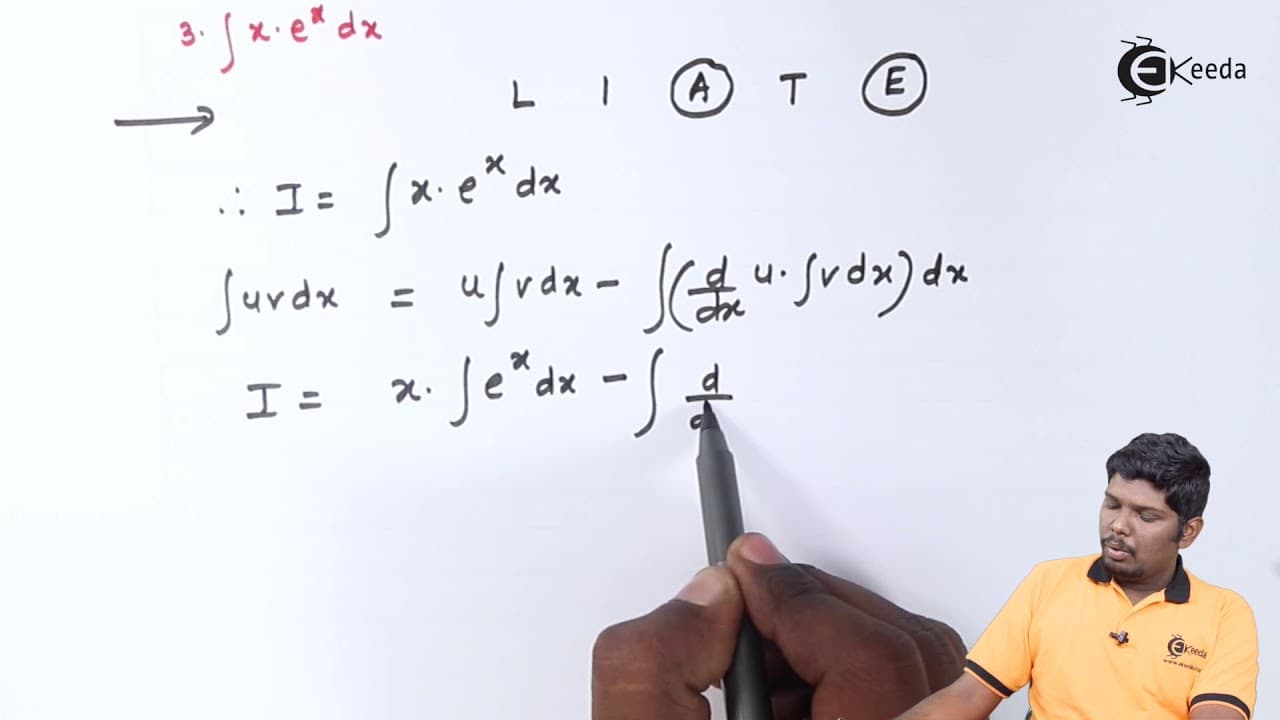 3. ∫ x · eˣ dx
EKeeda
L I A T E
∴ I = ∫ x · eˣ dx
∫uvdx = u∫vdx - ∫(d/dx u · ∫vdx) dx
I = x · ∫eˣ dx - ∫ d/d
EKeeda